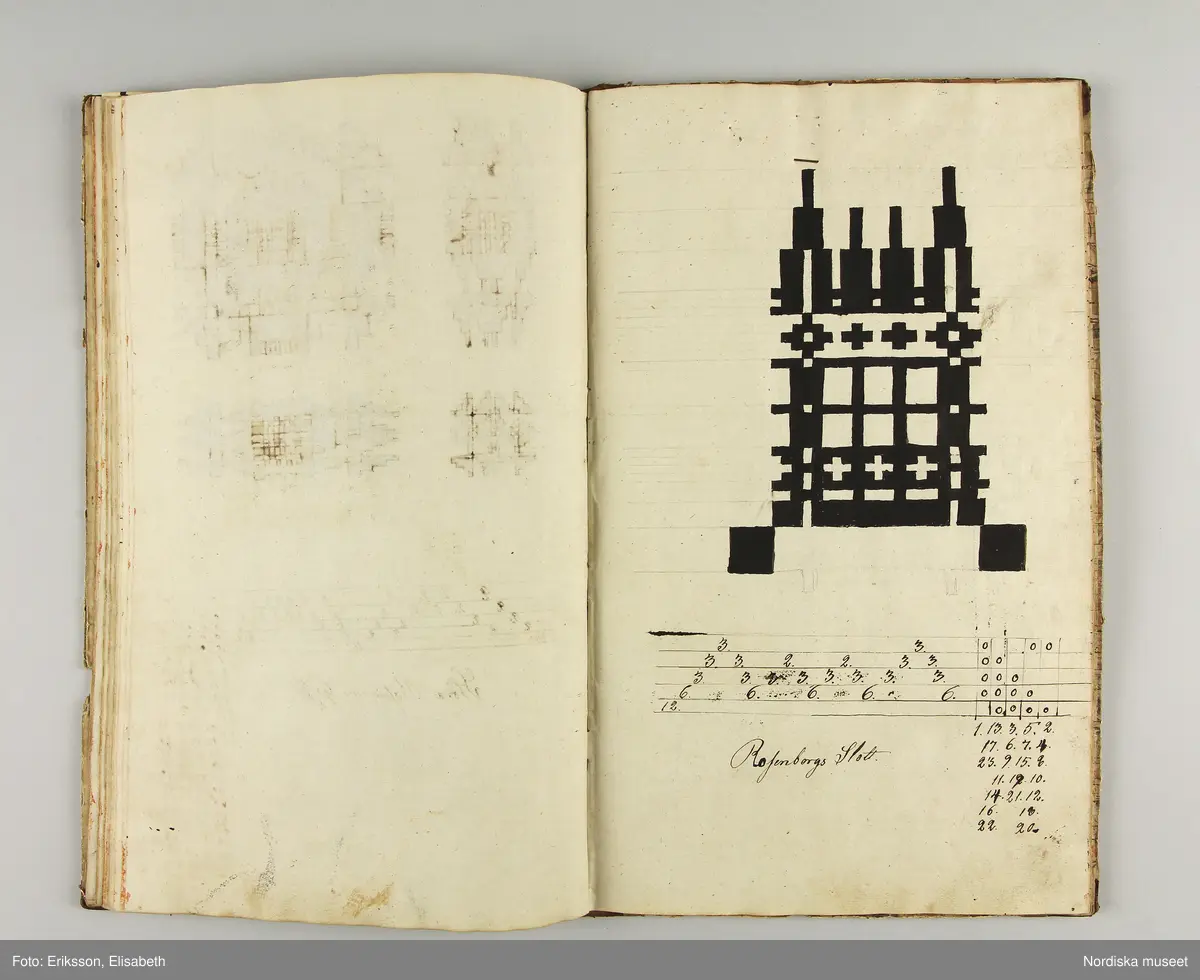 3. 3.
3. 3. 2. 2. 3. 3.
3. 3. 3. 3. 3. 3. 3.
6. 6. 6. 6. 6.
12.
o o o
o o
o o o
o o o o
o o o o
1. 13. 3. 5. 2.
17. 6. 7. 4.
23. 9. 15. 8.
11. 19. 10.
14. 21. 12.
16. 18.
22. 20.
Rosenborgs Slott.
Foto: Eriksson, Elisabeth
Nordiska museet